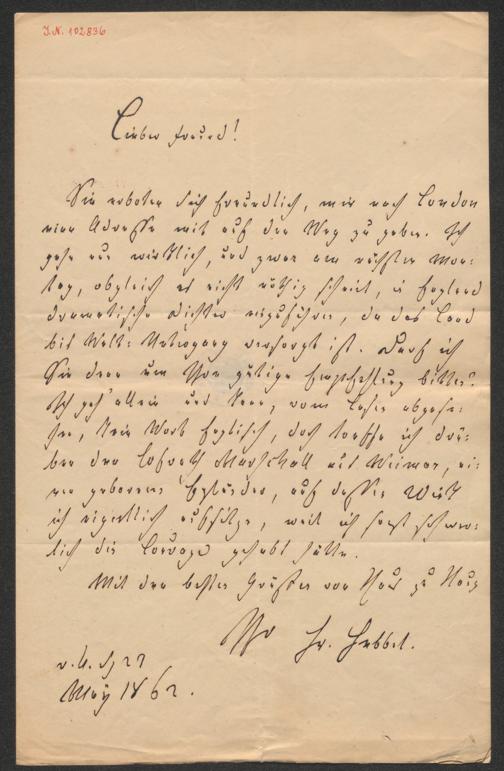 J.N. 102836
Lieber Freund!
Sie erboten sich freundlich, mir nach London
eine Adresse mit auf den Weg zu geben. Ich
gehe nun wirklich, und zwar am nächsten Mon-
tag, obgleich es nicht nöthig scheint, in England
dramatische Dichter einzuführen, da das Land
bis Welt-Untergang versorgt ist. Darf ich
Sie denn um Ihre gütige Empfehlung bitten?
Ich geh' allein und kann, vom Lesen abgese-
hen, kein Wort Englisch, doch treffe ich drü-
ben den Hofrath Marschall aus Weimar, ei-
nen geborenen Engländer, auf dessen
ich eigentlich, weil ich sonst schwer-
lich die Courage gehabt hätte.
Mit den besten Grüßen von Haus zu Haus
Ihr Fr. Hebbel.
27
May 1862.